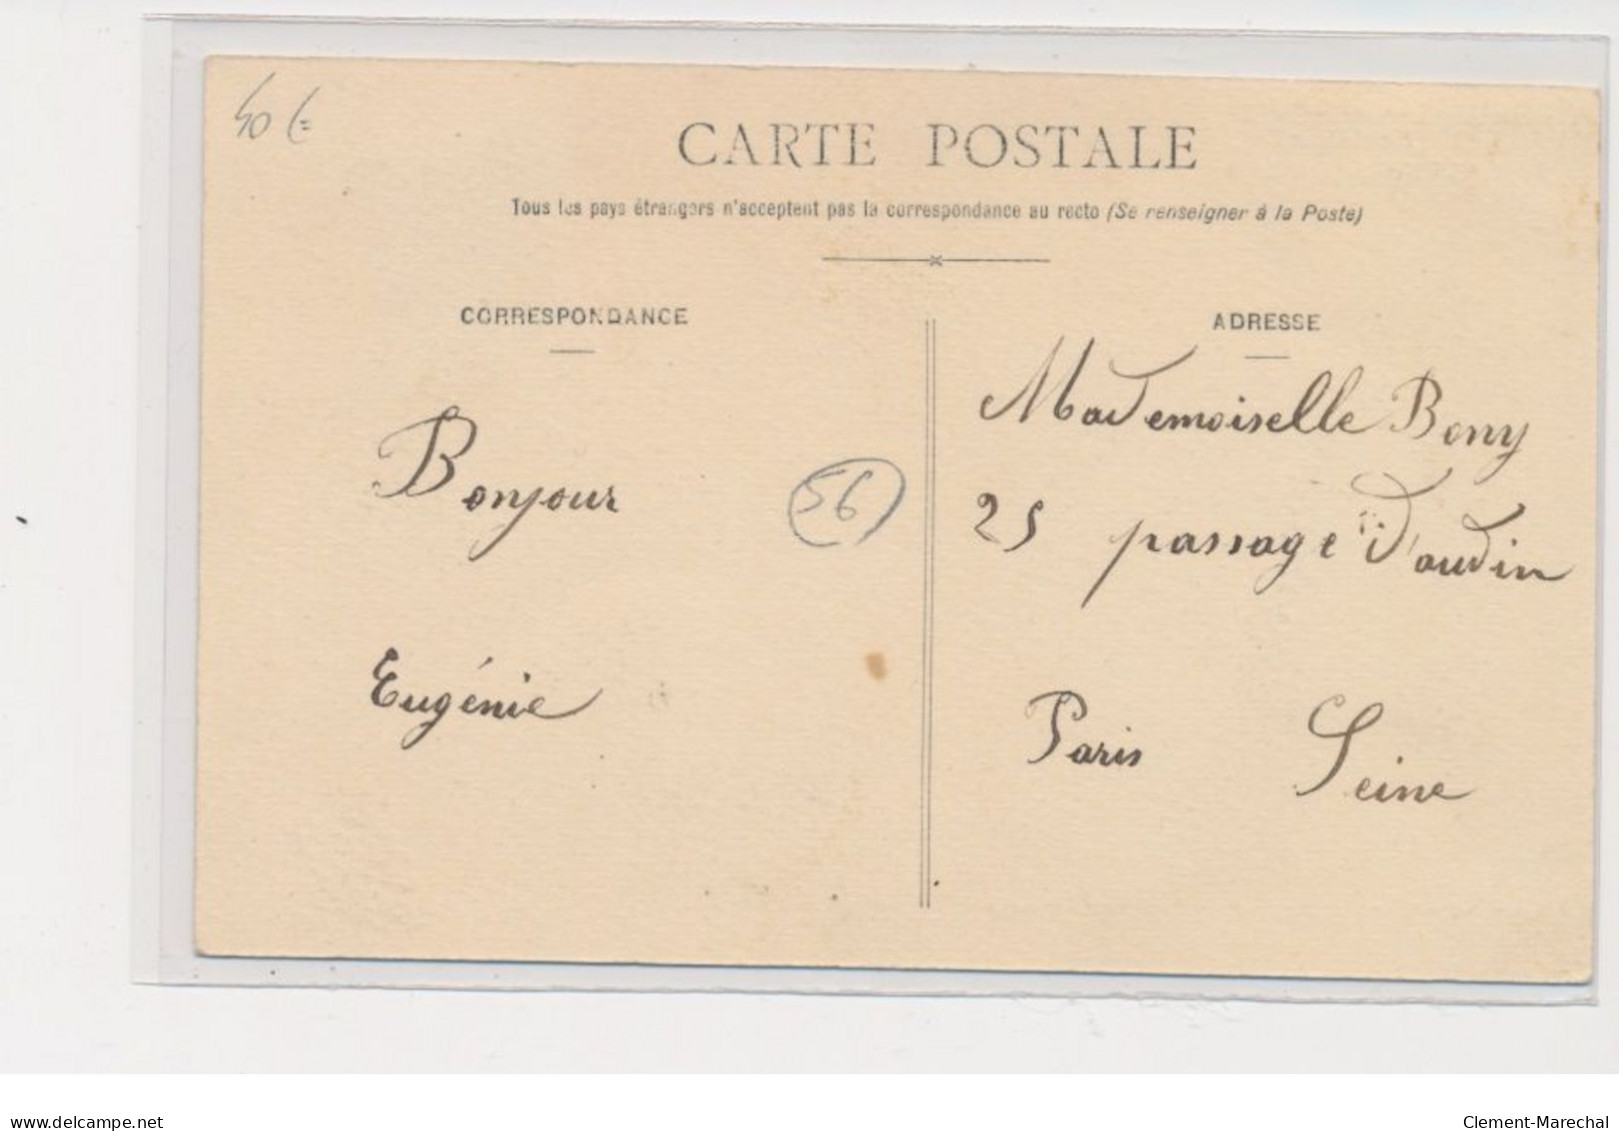 40 €
CARTE POSTALE
Tous les pays étrangers n'acceptent pas la correspondance au recto (Se renseigner à la Poste)
CORRESPONDANCE
Bonjour
56
Eugénie
ADRESSE
Mademoiselle Bony
25 passage D'audin
Paris Seine
delcampe.net
Clement-Marechal